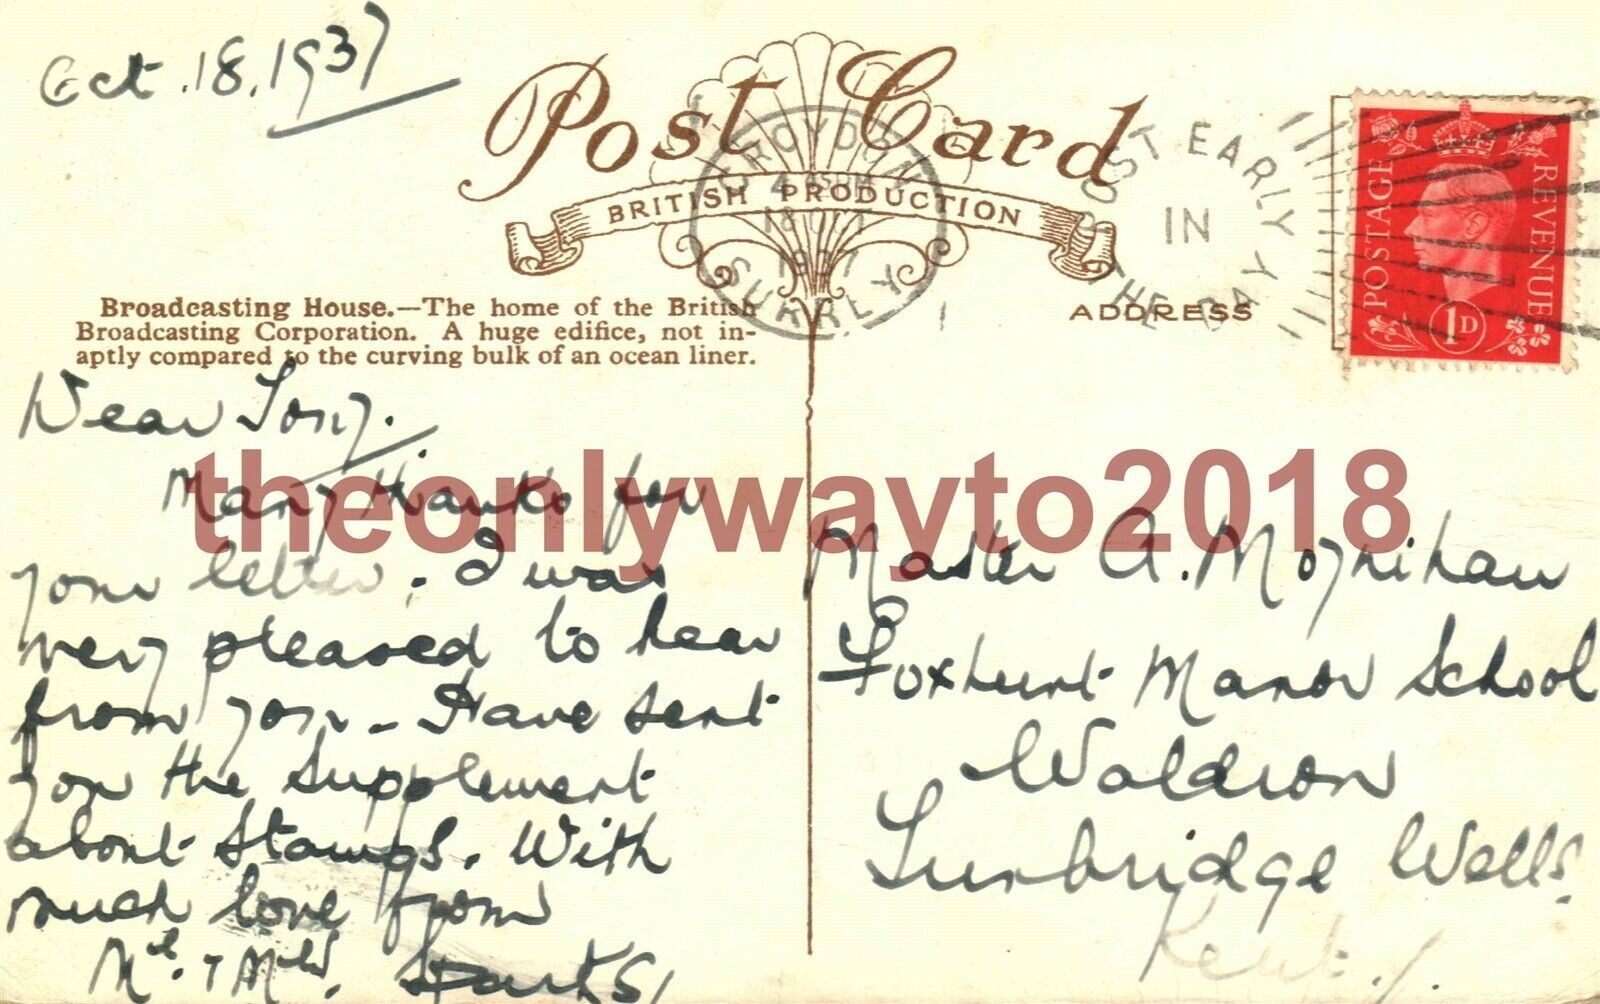 Oct. 18. 1937
Post Card
BRITISH PRODUCTION
CROYDON
SURREY
POST EARLY
IN
THE DAY
POSTAGE
REVENUE
1D
Broadcasting House.—The home of the British
Broadcasting Corporation. A huge edifice, not in-
aptly compared to the curving bulk of an ocean liner.
ADDRESS
Dear Tony.
Many thanks for
your letter. I was
very pleased to hear
from you - Have sent
you the Supplement
about Stamps. With
much love from
Mr. & Mrs. Sparks
theonlywayto2018
Master A. Moynihan
Foxhunt Manor School
Waldron
Tunbridge Wells.
Kent.